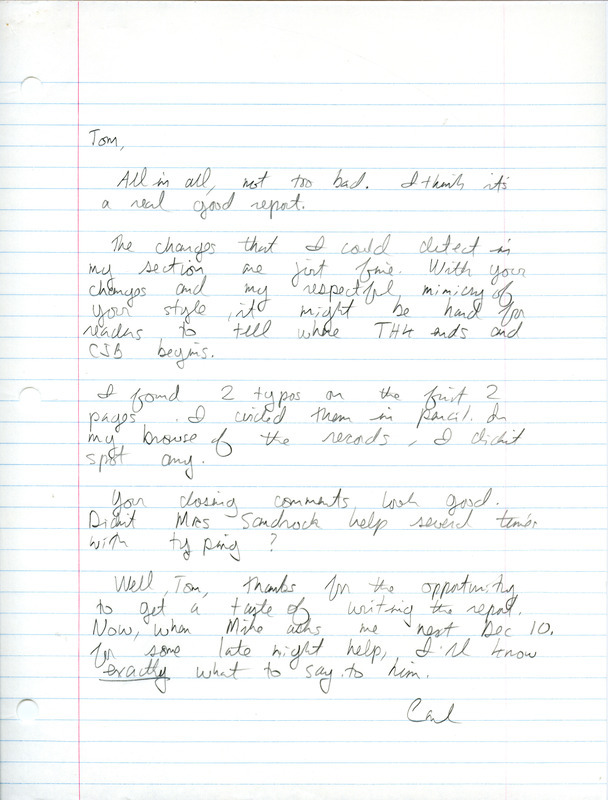 Tom,
All in all, not too bad. I think it's
a real good report.
The changes that I could detect in
my section are just fine. With your
changes and my respectful mimicry of
your style, it might be hard for
readers to tell where TH4 ends and
CJB begins.
I found 2 typos on the first 2
pages. I circled them in pencil. In
my browse of the records, I didn't
spot any.
Your closing comments look good.
Didn't Mrs Sandrock help several times
with typing?
Well, Tom, thanks for the opportunity
to get a taste of writing the report.
Now, when Mike asks me next Dec 10.
for some late night help, I'll know
exactly what to say to him.
Carl